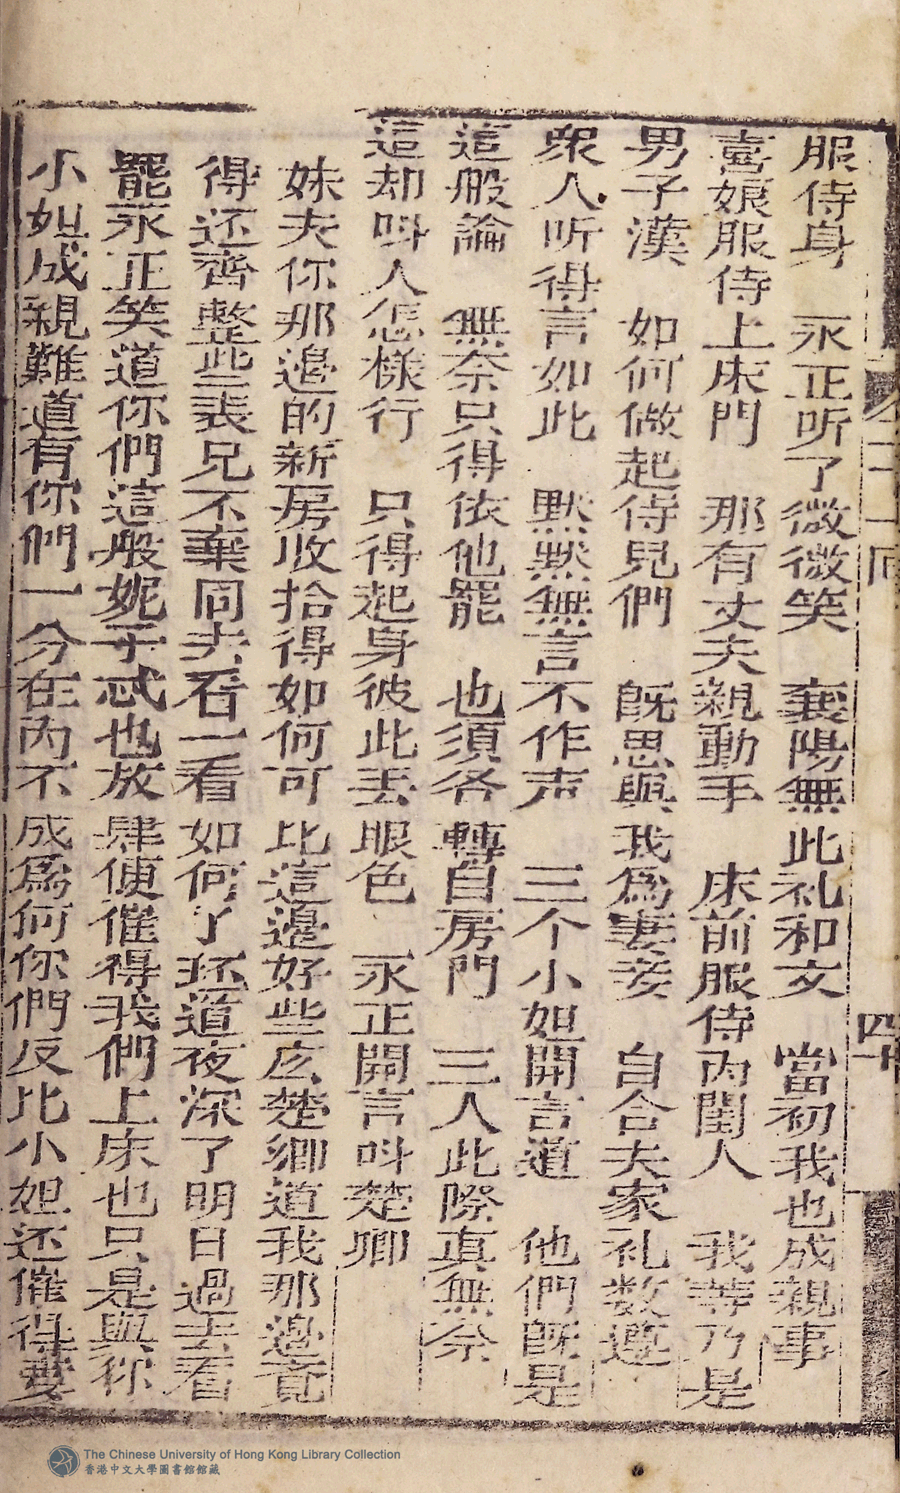 服侍身　永正听了微微笑　襄陽無此礼和文　當初我也成親事
喜娘服侍上床門　那有丈夫親動手　床前服侍內閨人　我等乃是
男子漢　如何做起侍兒們　既思與我為妻妾　自合夫家礼数遵
衆人听得言如此　默默無言不作声　三个小姐開言道　他們既是
這般論　無奈只得依他罷　也須各轉自房門　三人此際真無奈
這却呌人怎樣行　只得起身彼此丟眼色　永正開言呌楚卿
妹夫你那邉的新房收拾得如何可比這邉好些庅楚卿道我那邉竟
得还齊整些表兄不棄同去看一看如何了环道夜深了明日過去看
罷永正笑道你們這般妮子忒也放肆便催得我們上床也只是與你
小姐成親難道有你們一分在內不成為何你們反比小姐还催得要
二十一回
四十
The Chinese University of Hong Kong Library Collection
香港中文大學圖書館館藏